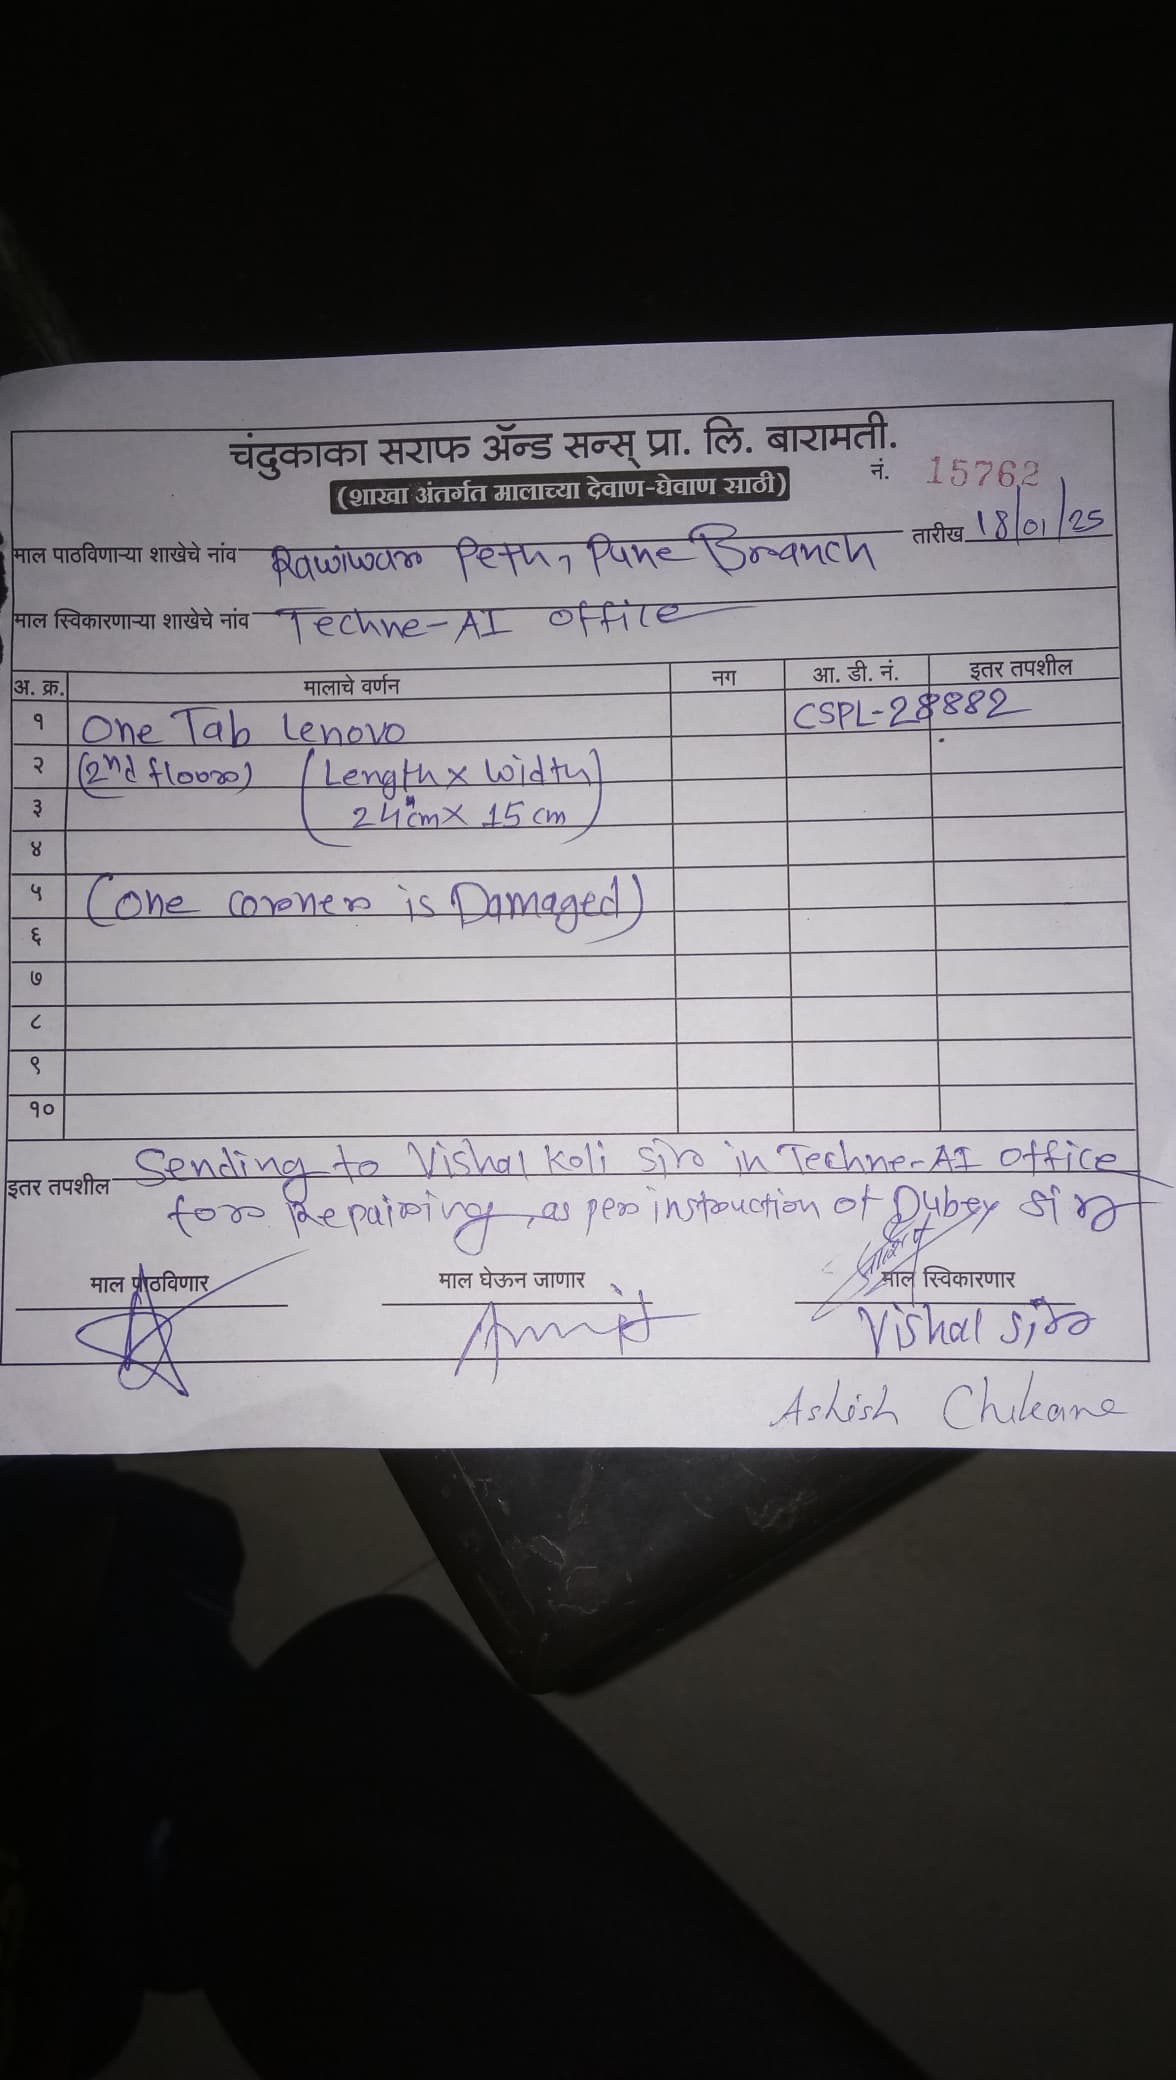 चंदुकाका सराफ ॲन्ड सन्स् प्रा. लि. बारामती.
(शाखा अंतर्गत मालाच्या देवाण-घेवाण साठी)
नं. 15762
माल पाठविणाऱ्या शाखेचे नांव Rawiwar Peth, Pune Branch तारीख 18/01/25
माल स्विकारणाऱ्या शाखेचे नांव Techne-AI office
अ. क्र. मालाचे वर्णन नग आ. डी. नं. इतर तपशील
१ One Tab Lenovo CSPL-28882
२ (2nd floor) (Length x Width)
३ 24cm x 15 cm
४
५ (one corner is Damaged)
६
७
८
९
१०
इतर तपशील Sending to Vishal Koli sir in Techne-AI office
for Repairing, as per instruction of Dubey sir
माल पाठविणार माल घेऊन जाणार माल स्विकारणार
Amit Vishal sir
Ashish